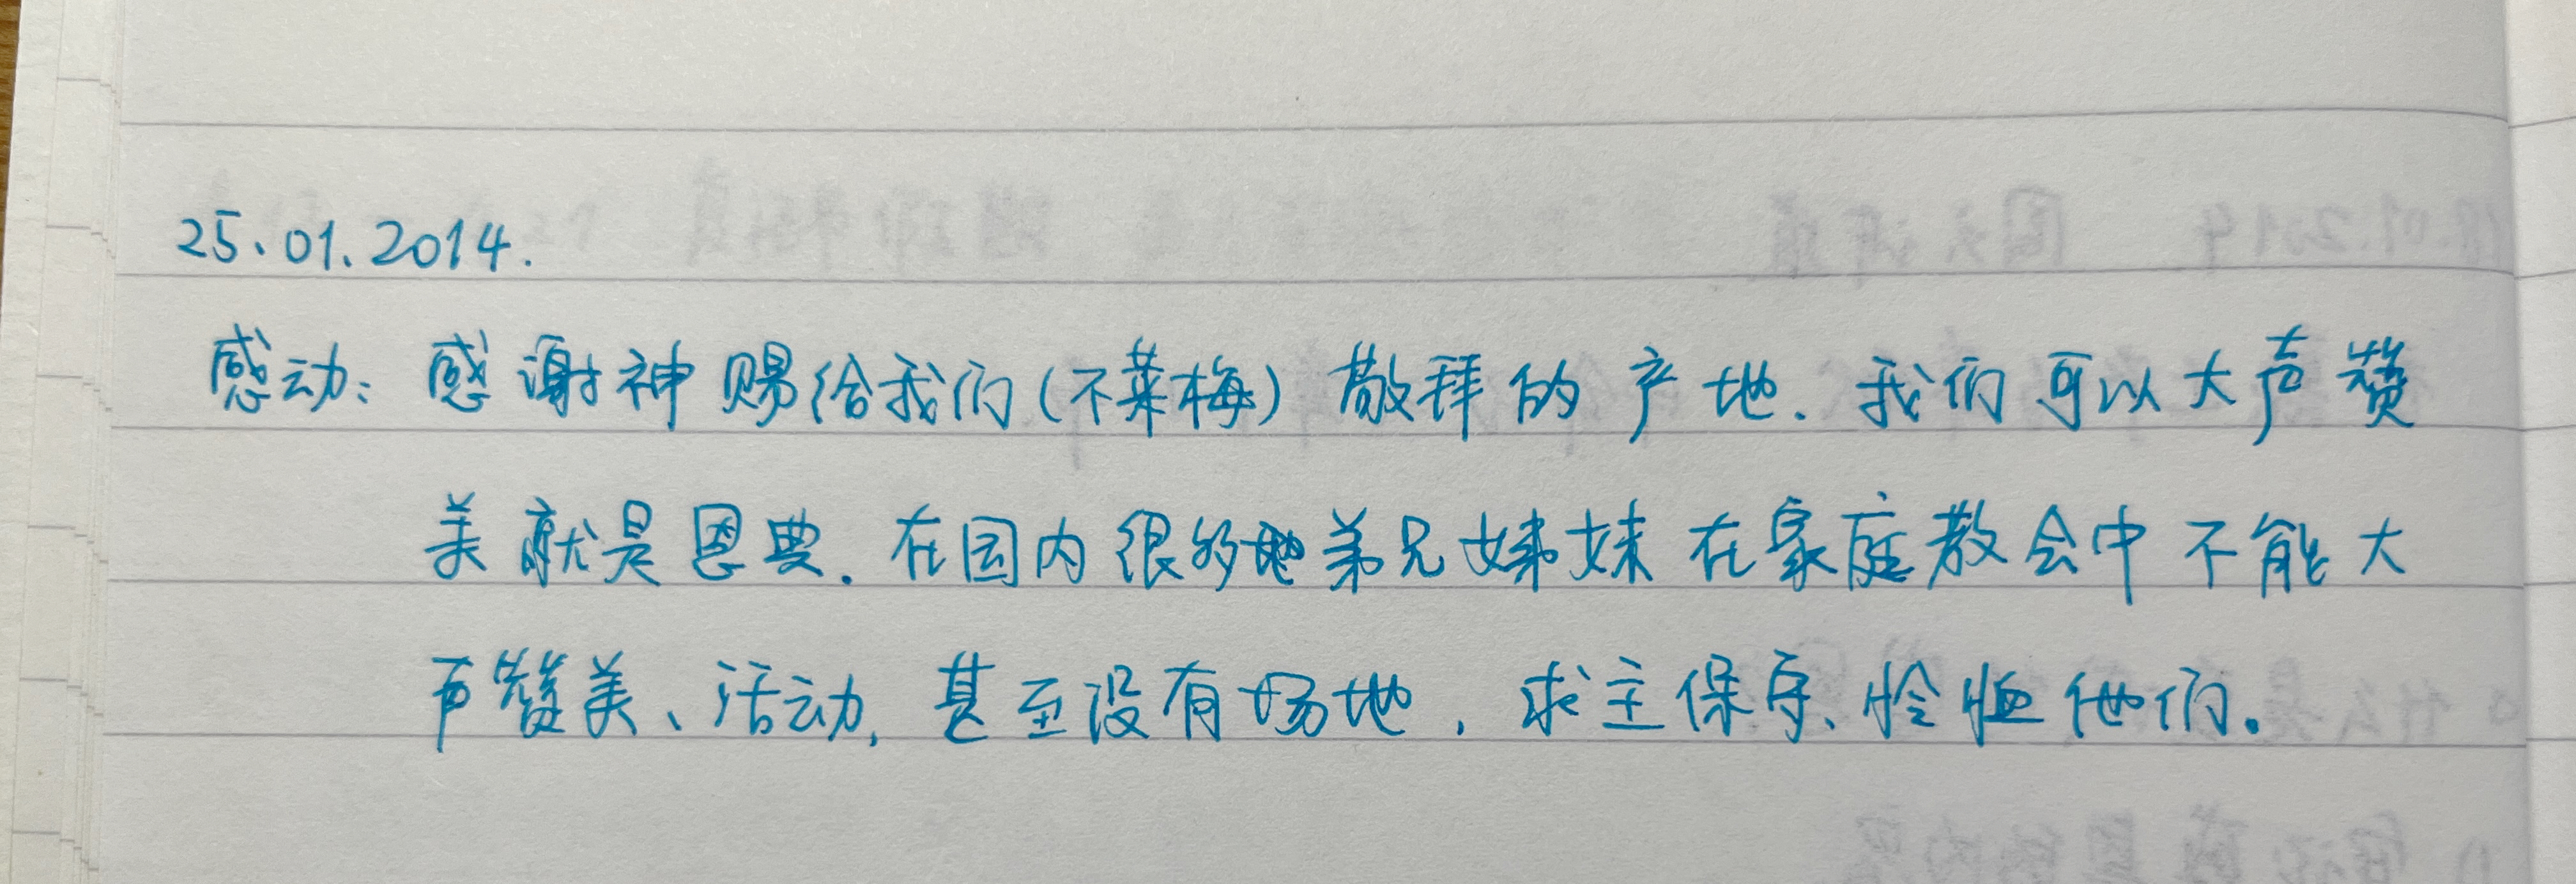 25.01.2014.
感动：感谢神赐给我们（不莱梅）敬拜的产地．我们可以大声赞
美就是恩典．在国内很多地弟兄姊妹在家庭教会中不能大
声赞美、活动，甚至没有场地，求主保守、怜恤他们。